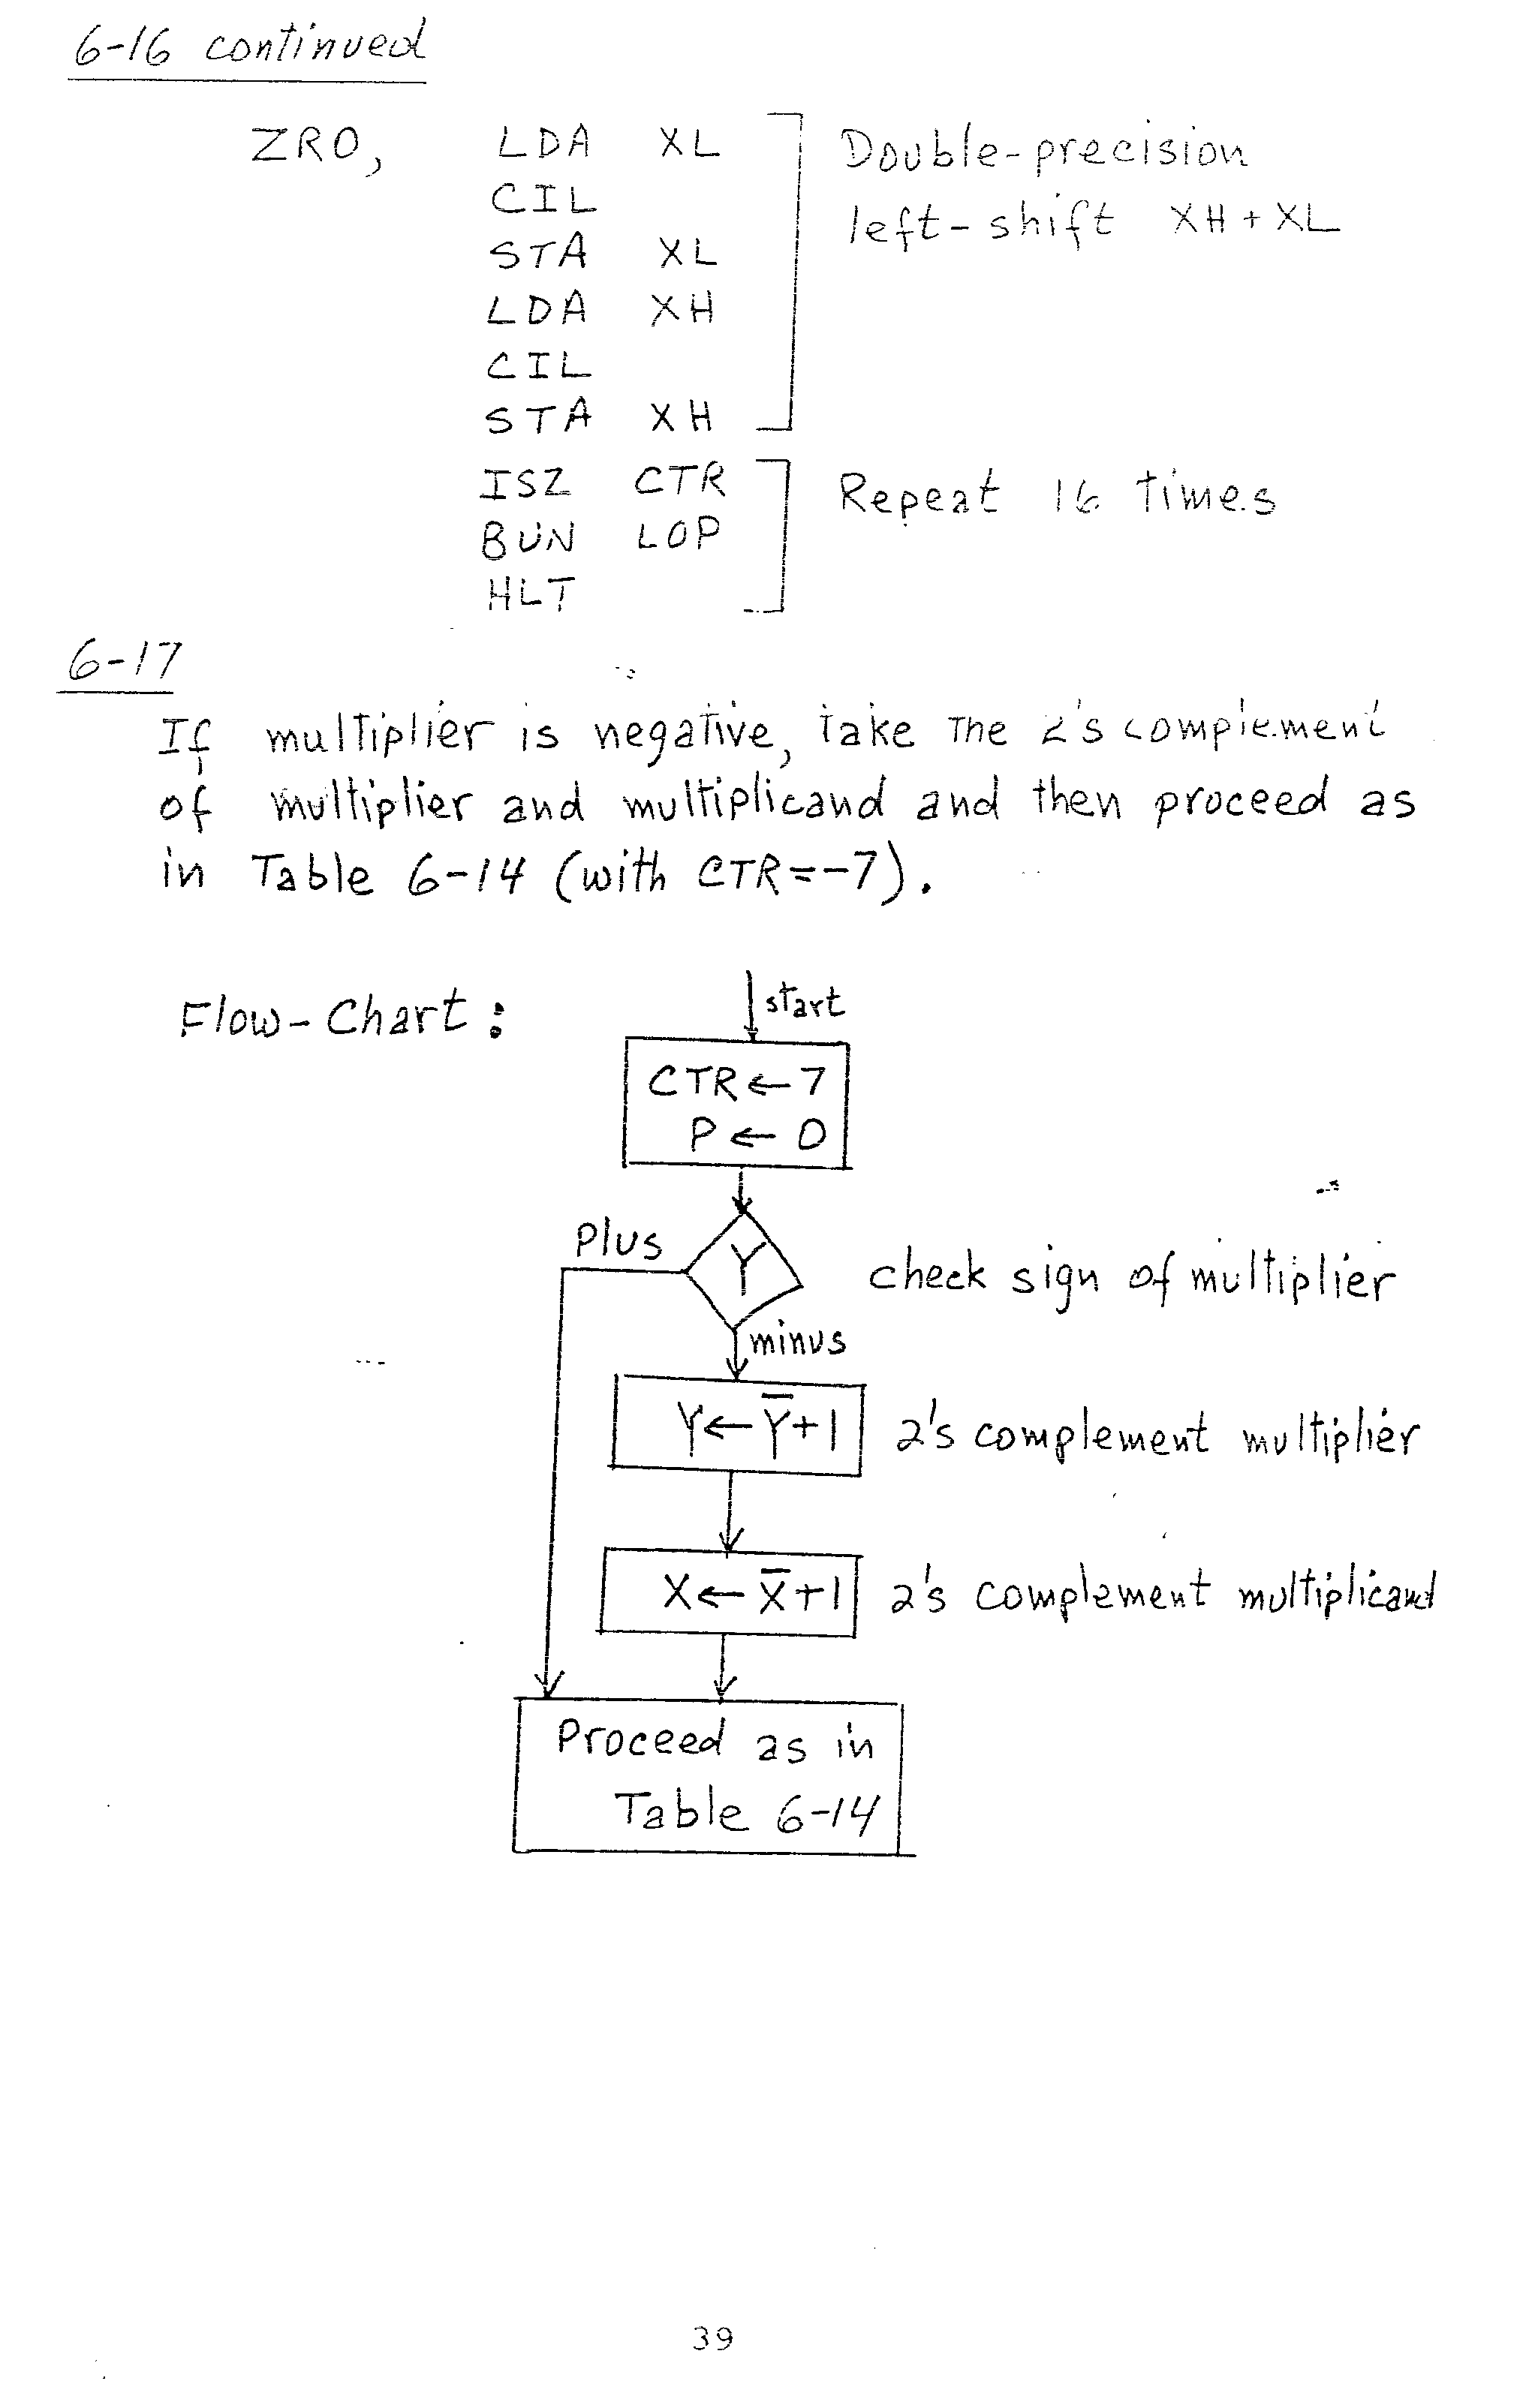 6-16 continued
ZRO, LDA XL Double-precision
CIL left-shift XH + XL
STA XL
LDA XH
CIL
STA XH
ISZ CTR Repeat 16 times
BUN LOP
HLT
6-17
If multiplier is negative, take the 2's complement
of multiplier and multiplicand and then proceed as
in Table 6-14 (with CTR=-7).
Flow-Chart:
start
CTR←7
P←0
Plus
Y
check sign of multiplier
minus
Y←Y̅+1 2's complement multiplier
X←X̅+1 2's complement multiplicand
Proceed as in
Table 6-14
39